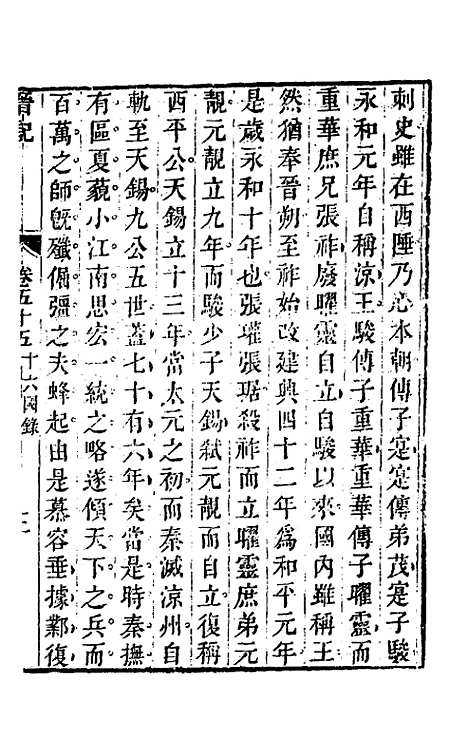 刺史雖在西陲乃心本朝傳子寔寔傳弟茂寔子駿
永和元年自稱涼王駿傳子重華重華傳子曜靈而
重華庶兄張祚廢曜靈自立自駿以來國內雖稱王
然猶奉晉朔至祚始改建興四十二年為和平元年
是歲永和十年也張瓘張琚殺祚而立曜靈庶弟元
靚元靚立九年而駿少子天錫弒元靚而自立復稱
西平公天錫立十三年當太元之初而秦滅涼州自
軌至天錫九公五世蓋七十有六年矣當是時秦撫
有區夏藐小江南思宏一統之略遂傾天下之兵而
百萬之師旣殲倔彊之夫蜂起由是慕容垂據鄴復
晉記
卷五十五
十六國錄